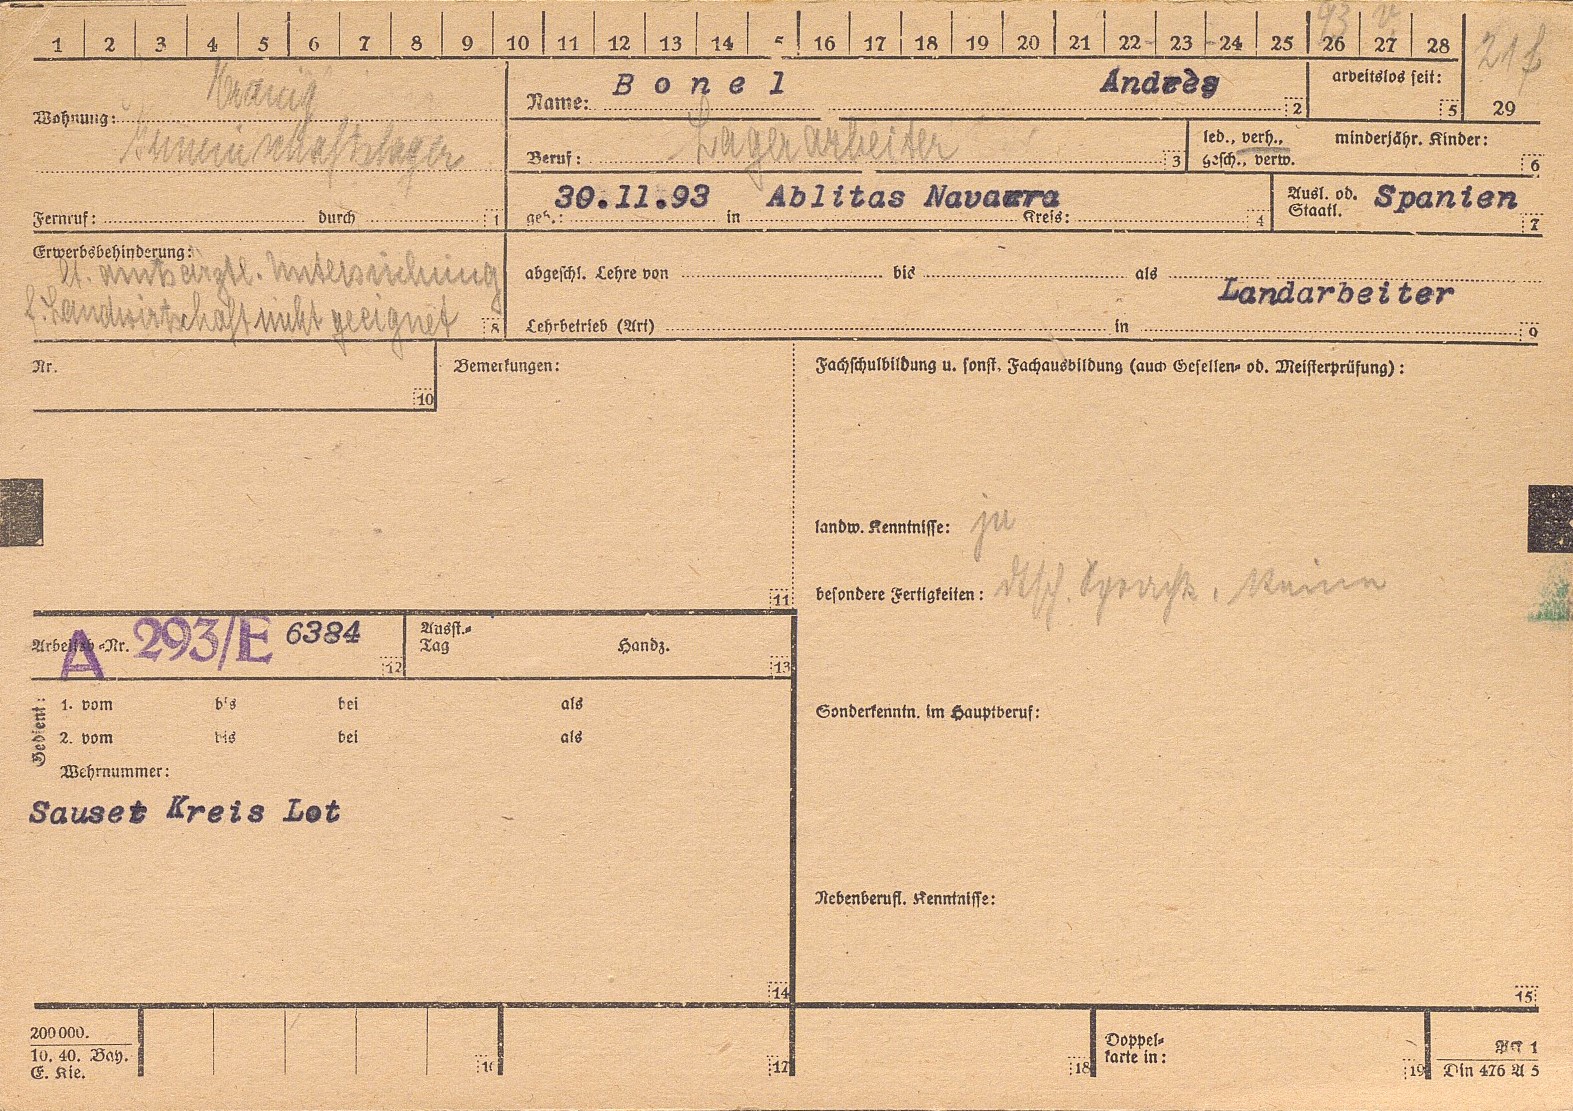 1 2 3 4 5 6 7 8 9 10 11 12 13 14 16 17 18 19 20 21 22 23 24 25 26 27 28
93 v
Wohnung:
Gemeinschaftslager
Fernruf: durch 1
Name: Bonel Andrès 2
arbeitslos seit: 5
29
Beruf: Lagerarbeiter 3
led., verh., gesch., verw.
minderjähr. Kinder: 6
geb.: 30.11.93 in Ablitas Navarra Kreis: 4
Ausl. od. Staatl. Spanien 7
Erwerbsbehinderung:
lt. amtsärztl. Untersuchung
f. Landwirtschaft nicht geeignet 8
abgeschl. Lehre von bis als
Landarbeiter
Lehrbetrieb (Art) in 9
Nr. 10
Bemerkungen: 11
Fachschulbildung u. sonst. Fachausbildung (auch Gesellen- od. Meisterprüfung):
landw. Kenntnisse: ja
besondere Fertigkeiten: dtsch. Sprachk. keine
Arbeitsb.-Nr. A 293/E 6384 12
Ausst.-Tag Handz. 13
Gedient:
1. vom bis bei als
2. vom bis bei als
Wehrnummer:
Sauset Kreis Lot
14
Sonderkenntn. im Hauptberuf:
Nebenberufl. Kenntnisse:
15
200 000.
10. 40. Bay.
E. Kie.
16 17 18
Doppel-
karte in: 19
AK 1
Din 476 A 5